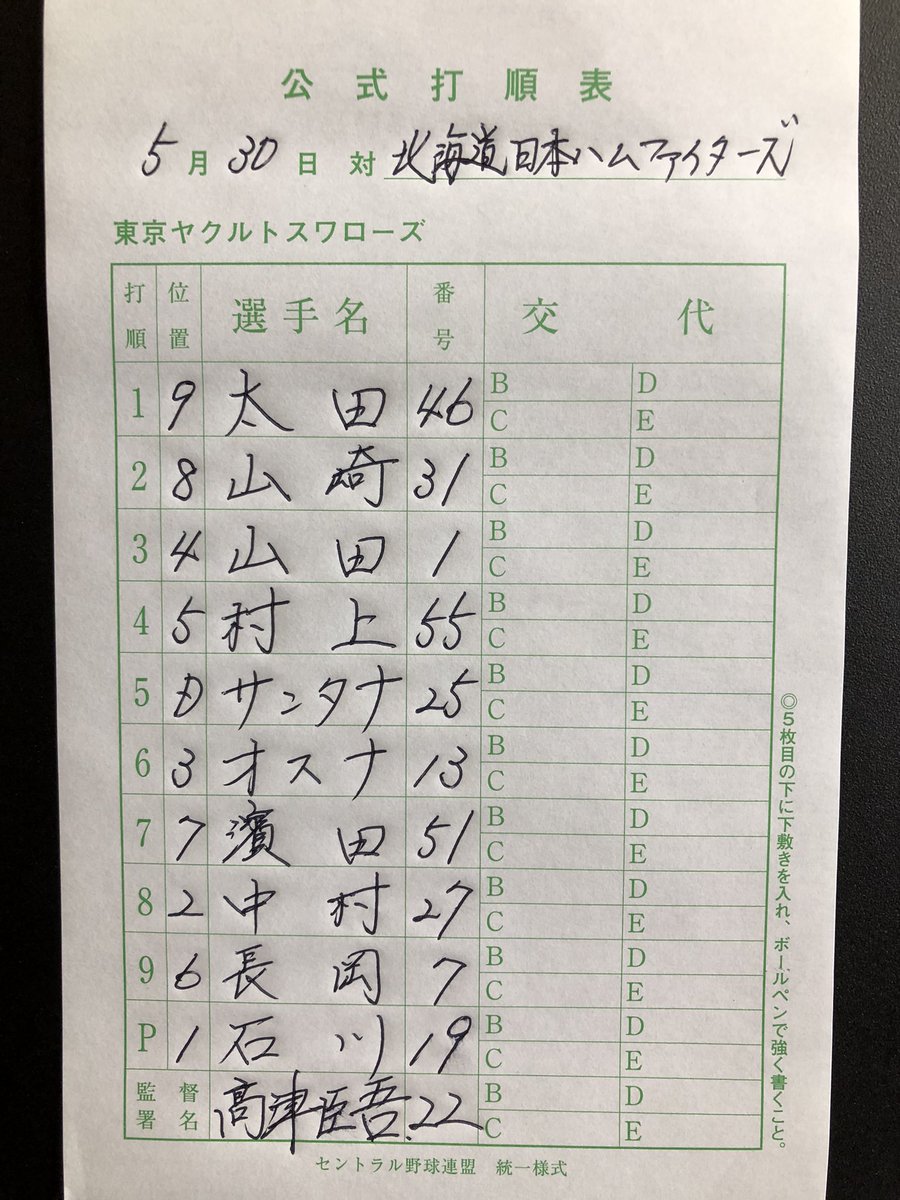 公式打順表
5月30日 対 北海道日本ハムファイターズ
東京ヤクルトスワローズ
打順 位置 選手名 番号 交代
1 9 太田 46 B D C E
2 8 山崎 31 B D C E
3 4 山田 1 B D C E
4 5 村上 55 B D C E
5 D サンタナ 25 B D C E
6 3 オスナ 13 B D C E
7 7 濱田 51 B D C E
8 2 中村 27 B D C E
9 6 長岡 7 B D C E
P 1 石川 19 B D C E
監督署名 髙津臣吾.22 B D C E
◎5枚目の下に下敷きを入れ、ボールペンで強く書くこと。
セントラル野球連盟 統一様式